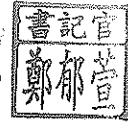 書記官
鄭郁萱